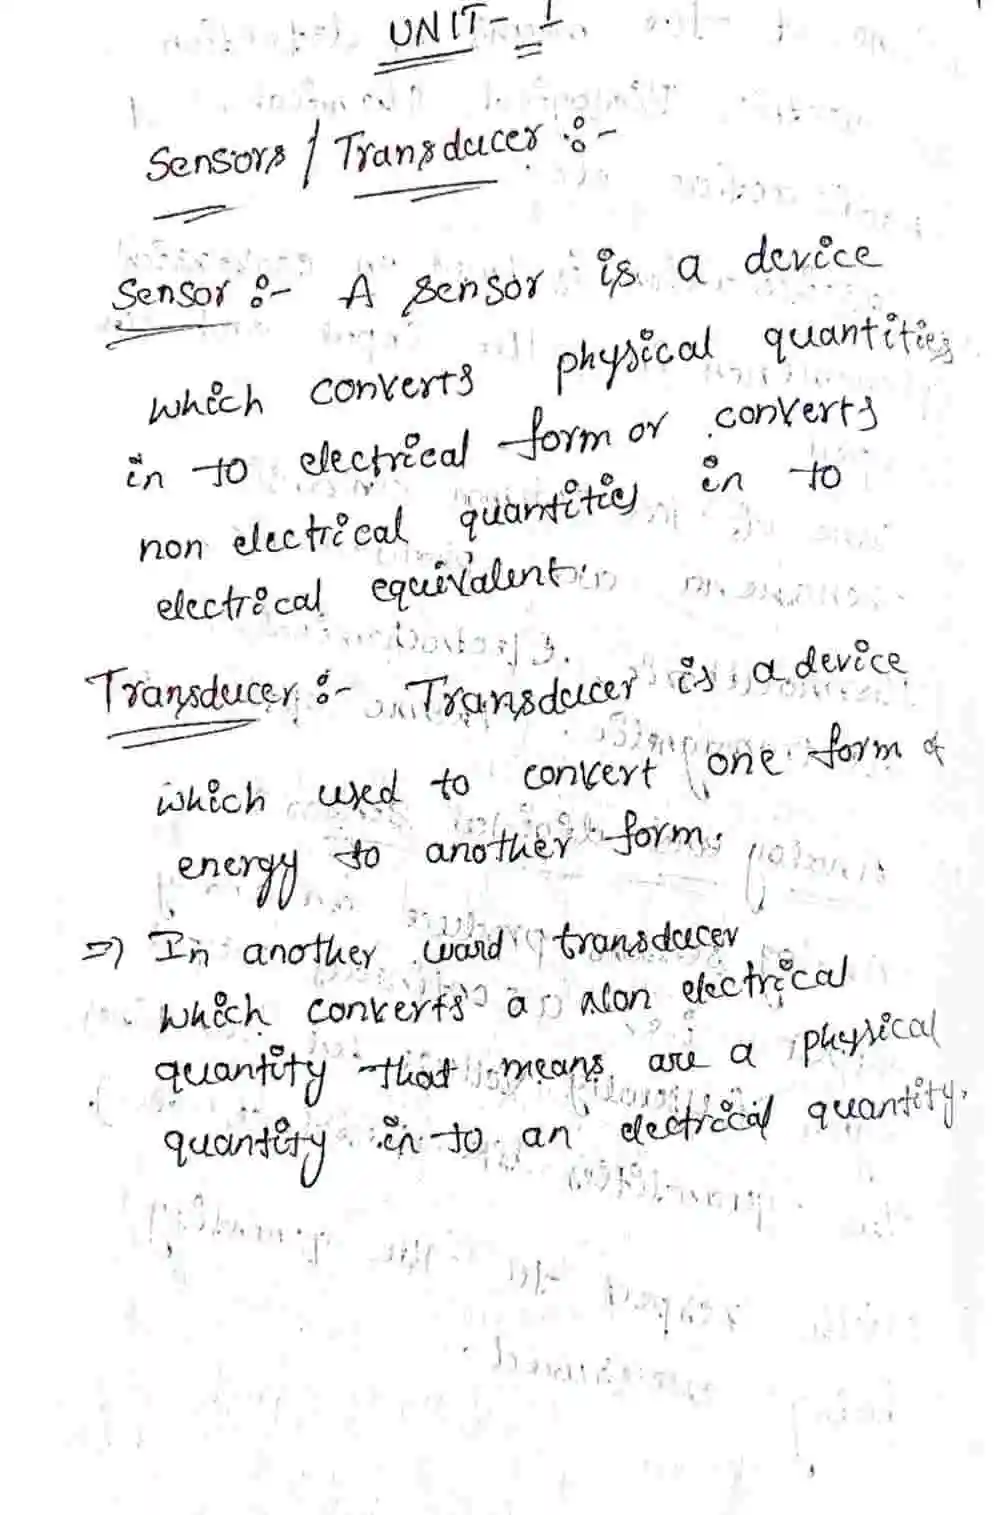 UNIT - I
Sensors / Transducer :-
Sensor :- A sensor is a device
which converts physical quantities
in to electrical form or converts
non electrical quantities in to
electrical equivalent.
Transducer :- Transducer is a device
which used to convert one form of
energy to another form.
=> In another word transducer
which converts a Non electrical
quantity that means are a physical
quantity in to an electrical quantity.